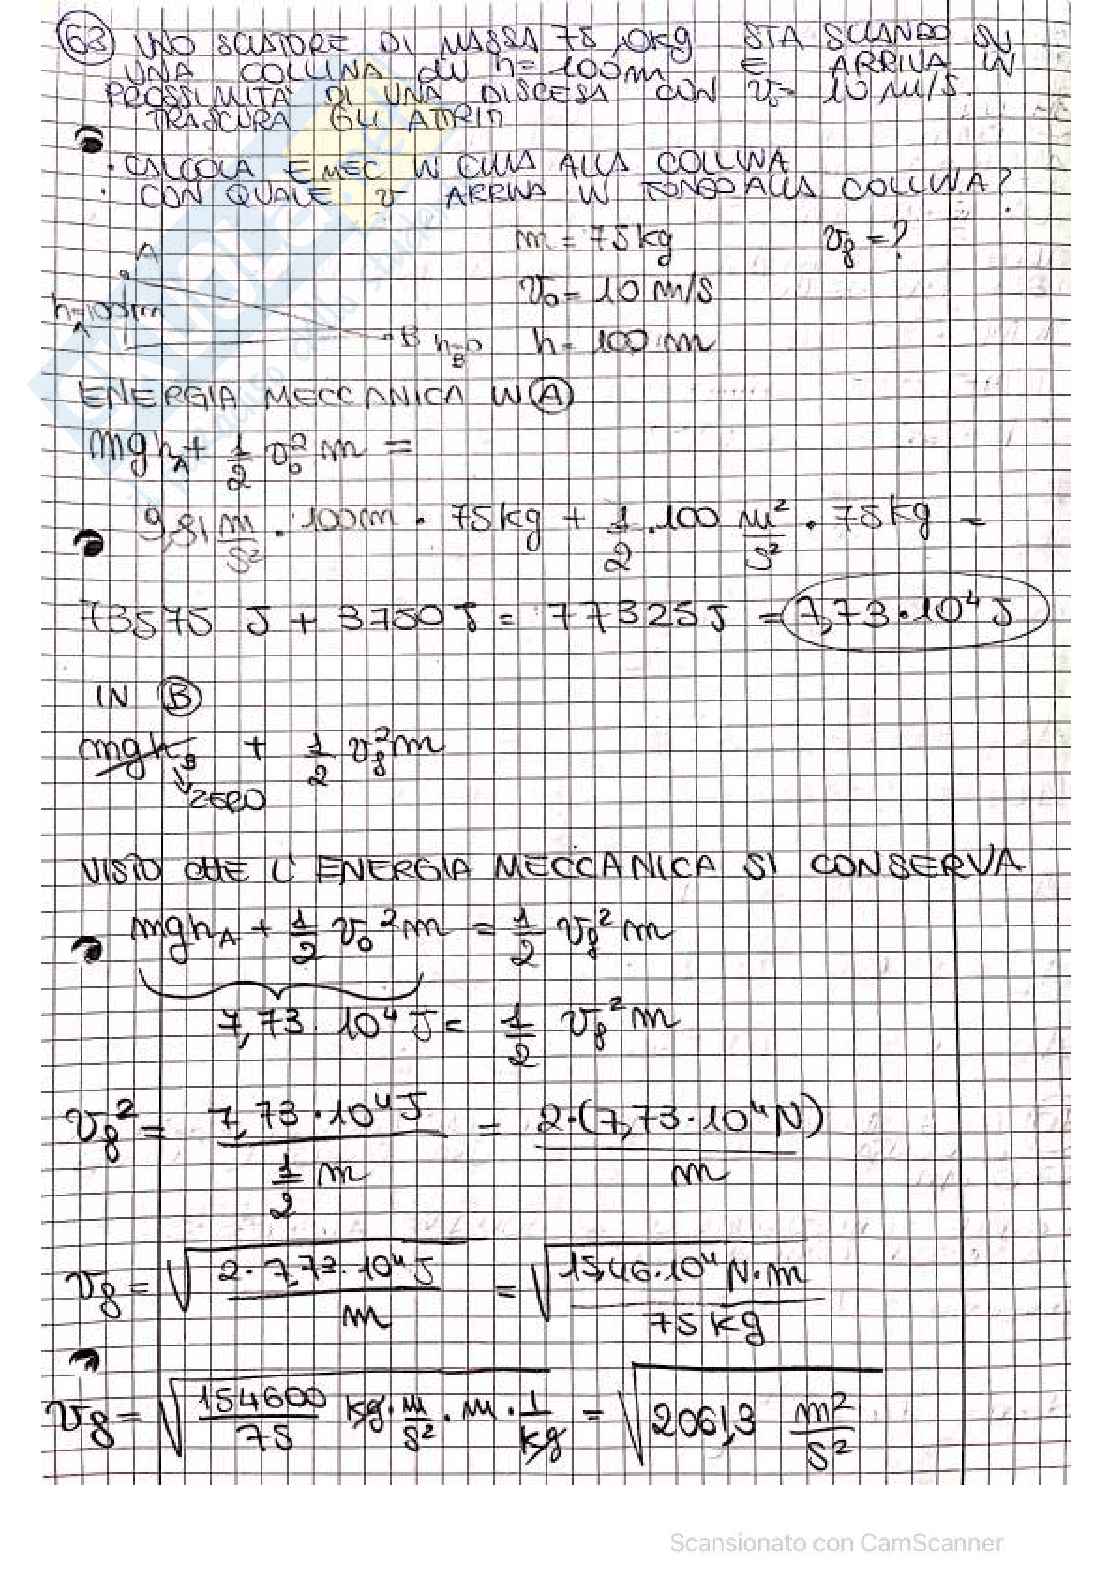 63 UNO SCIATORE DI MASSA 75,0kg STA SCIANDO SU
UNA COLLINA di h= 100m E ARRIVA IN
PROSSIMITA' DI UNA DISCESA CON v= 10 m/s.
TRASCURA GLI ATTRITI
• CALCOLA EMEC IN CIMA ALLA COLLINA
• CON QUALE v ARRIVA IN FONDO ALLA COLLINA?
A m = 75kg vf = ?
h=100m v0 = 10 m/s
A
B hB=0 h= 100 m
ENERGIA MECCANICA IN A
mghA + 1/2 v0² m =
9,81 m/s² · 100m · 75kg + 1/2 · 100 m²/s² · 75kg =
73575 J + 3750 J = 77325 J = 7,73·10⁴ J
IN B
mghB + 1/2 vf² m
ZERO
VISTO CHE L'ENERGIA MECCANICA SI CONSERVA
mghA + 1/2 v0² m = 1/2 vf² m
7,73 · 10⁴ J = 1/2 vf² m
vf² = 7,73·10⁴ J / 1/2 m = 2·(7,73·10⁴ N) / m
vf = √ 2·7,73·10⁴ J / m = √ 15,46·10⁴ N·m / 75 kg
vf = √ 154600/75 kg·m/s² · m · 1/kg = √ 2061,3 m²/s²
Scansionato con CamScanner